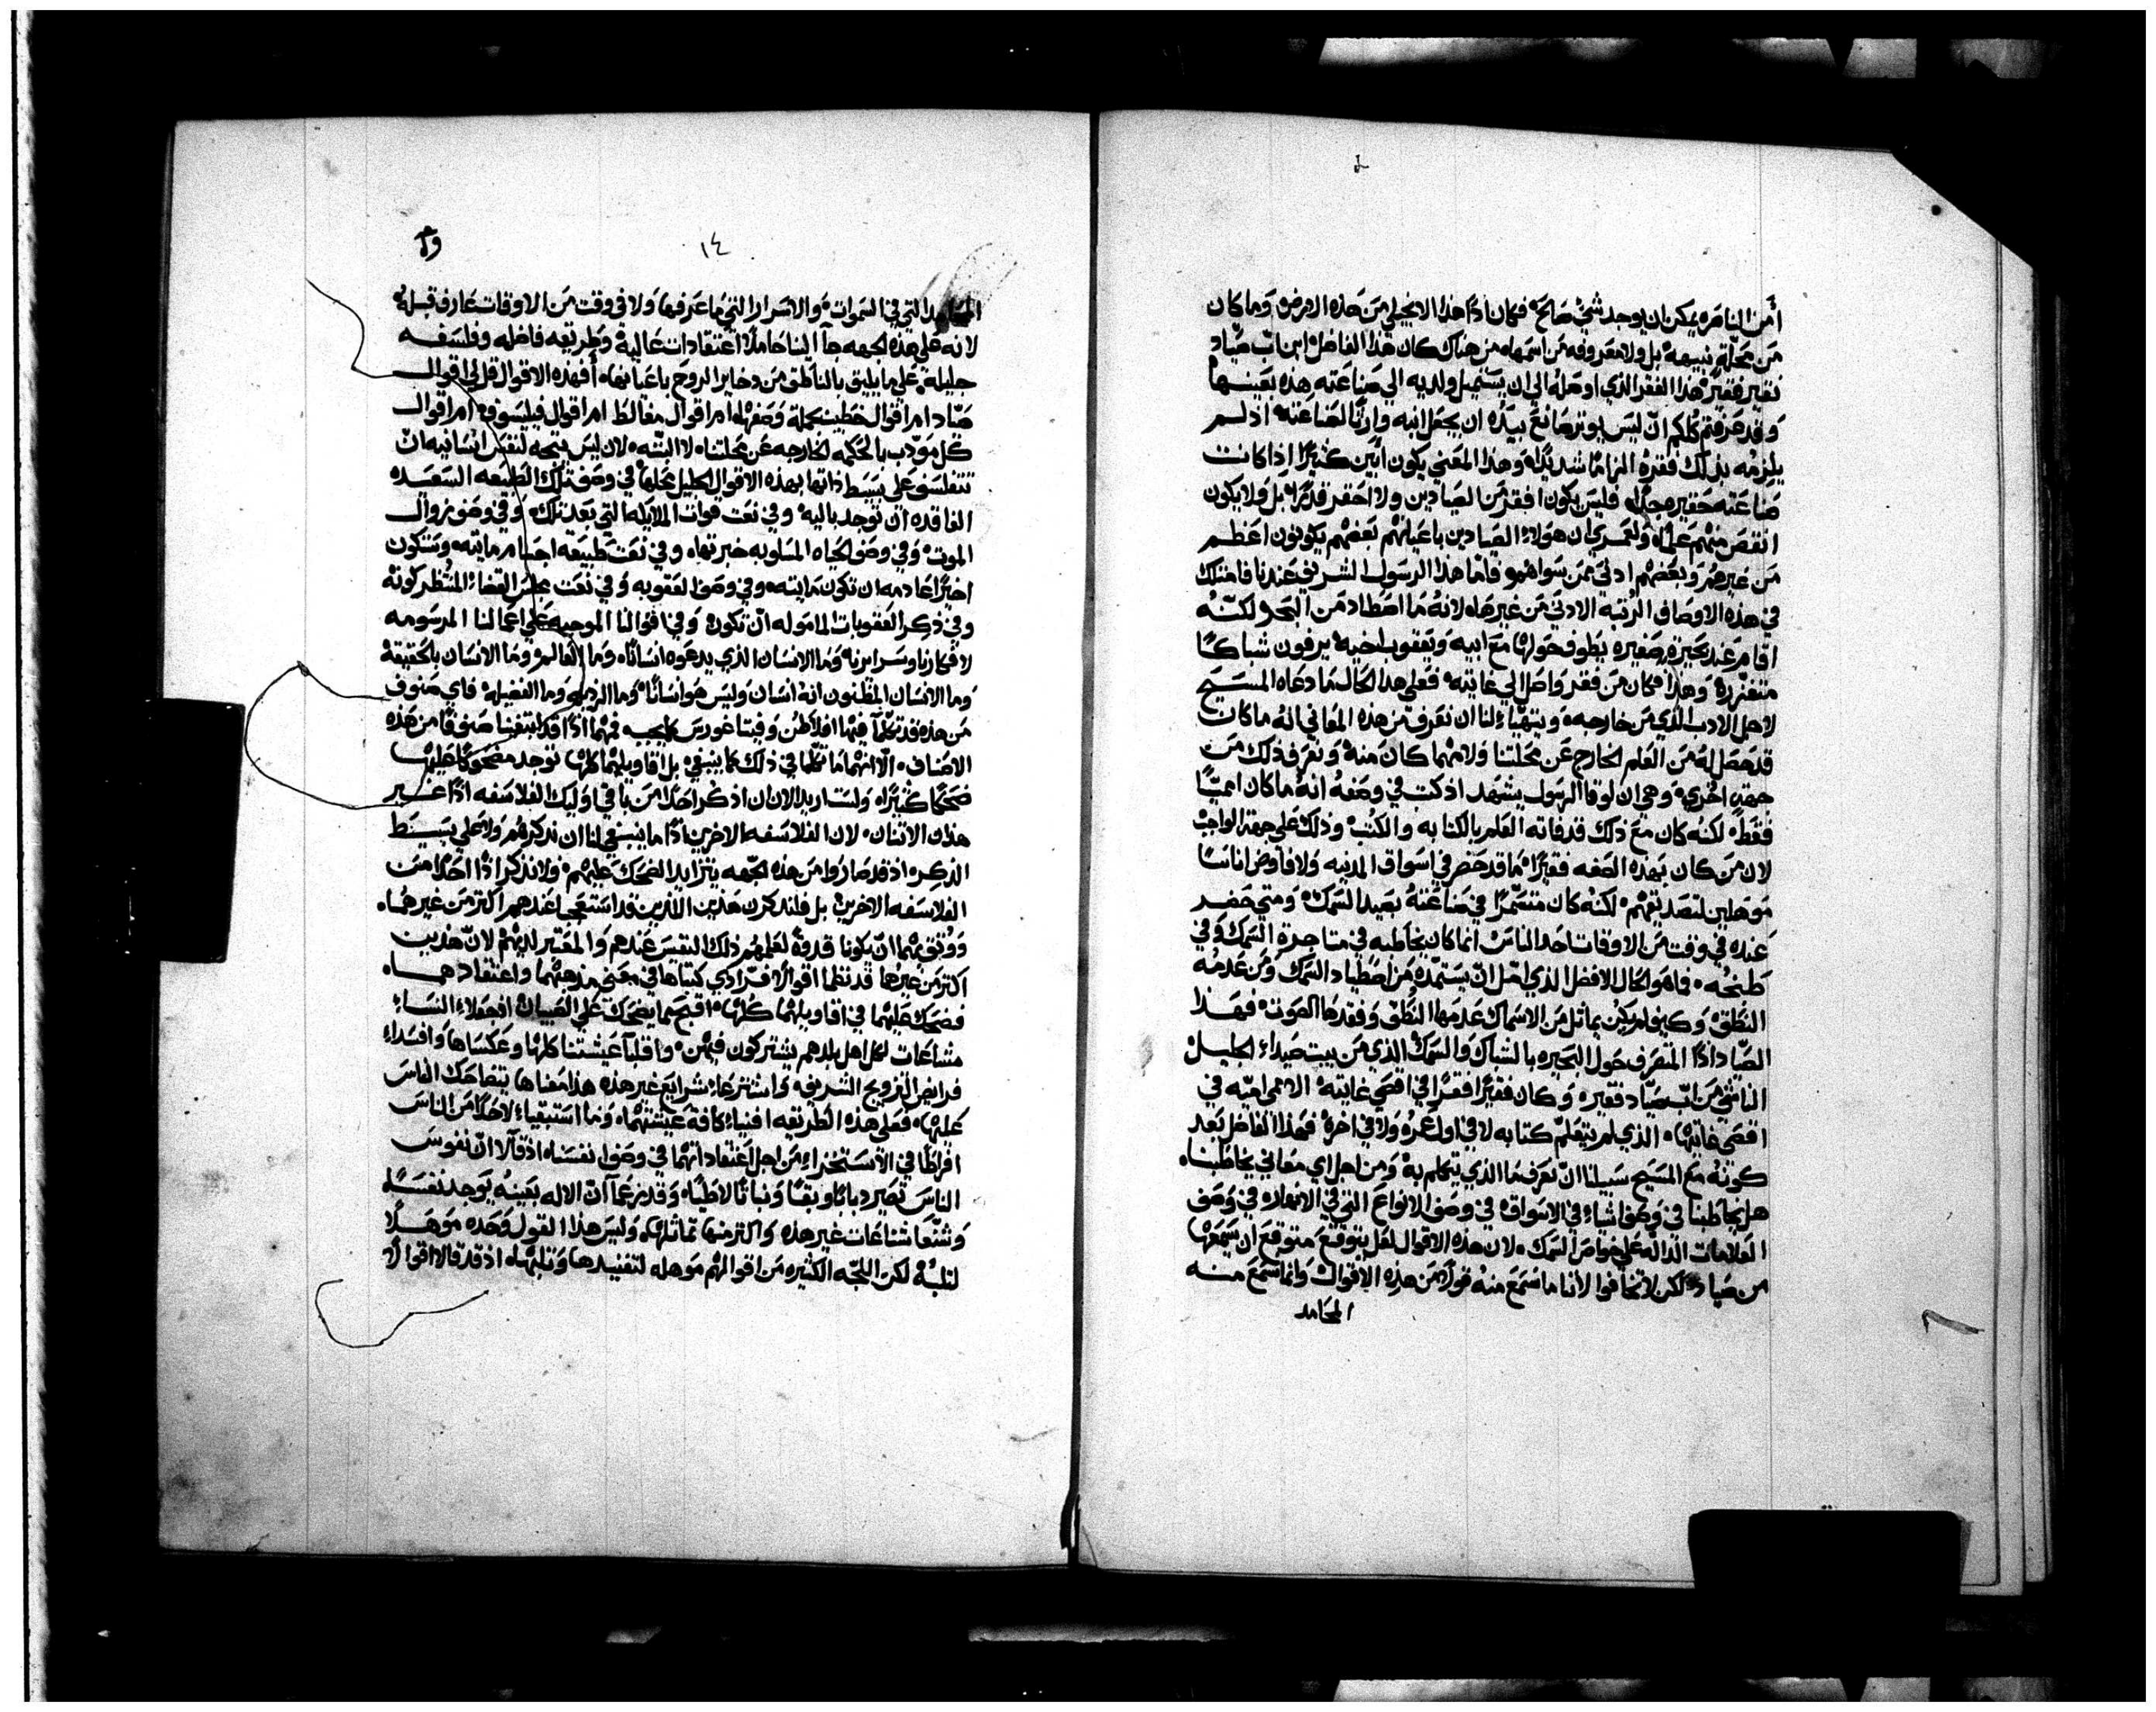 أمن الناصره يمكن ان يوجد شي صالح فكان اذًا هذا الانجيلي من هذه الارض وما كان
من محلّةٍ نبيهه بل ولا معروفه من اسمها من هناك كان هذا الفاضل ابن اب صيّاد
فقير فقيرً هذا الفقر الذي اوصله الي ان يستميل ولديه الي صناعته هذه بعينها
وقد عرفتم كلكم انّ ليس يوتر صانعً بيّده ان يجعل ابنه وارثًا لصناعته اذ لم
يلزمه بذلك فقره الزامًا شديدًا وهذا المعني يكون ابين كثيرًا اذا كانت
صناعته حقيره جدًا فليس يكون افقر من الصيادين ولا احقر قدرًا بل ولا يكون
انقص منهم علمًا ولعمري ان هولاء الصيادين باعيانهم بعضهم يكونون اعظم
من غيرهم وبعضهم ادني ممن سواهم فاما هذا الرسول الشريف عندنا فامتلك
في هذه الاوصاف الرتبه الادني من غيرها لانه ما اصطاد من البحر لكنّه
اقام عند بحيرةٍ صغيره يطوف حولها مع ابيه ويعقوب اخيه يرفون شباكًا
متفزّره وهذا فكان من فقر واصل الي غايته فعلي هذا الحال ما دعاه المسيح
لاجل الادب الذي من خارجه ويتهيّاء لنا ان نعرف من هذه المعاني انه ما كان
قد حصل له من العلم الخارج عن محلتنا ولا مهما كان منه ونعرف ذلك من
جهةٍ اخري وهي ان لوقا الرسول يشهد اذ كتب في وصفه انه ما كان اميًّا
فقط لكنه كان مع ذلك قد فاته العلم بالكتابه والكتب وذلك علي جهة الواجب
لان من كان بهذه الصفه فقيرًا ما قد حضر في اسواق المدنيه ولا فاوض اناسًا
موهلين لتصديقهم لكنه كان متشمّرًا في صناعته بصيد السمك ومتي حضر
عنده في وقت من الاوقات احد الناس انما كان يخاطبه في متاجرة السمك وفي
طبخه فما هو الحال الافضل الذي امل ان يستمده من اصطياد السمك ومن عدمه
النطق وكيف لم يكن يماثل من الاسماك عدمها النطق وفقدها الصوت فهذا
الصّياد اذًا المتصرف حول البحيره بالشباك والسمك الذي من بيت صيداء الجليل
الناشي من ابّ صيّاد فقيره وكان فقيرًا فقرًا في اقصي غايته الامي اميّه في
اقصي غايتها الذي لم يتعلم كتابه لا في اول عمره ولا في اخره فهذا الفاضل بعد
كونه مع المسيح سبيلنا انّ نعرف ما الذي يتكلم به ومن اجل اي معاني يخاطبنا
هل يخاطبنا في وصف اشياء في الاسواق في وصف الانواع التي في الانهار في وصف
العلامات الداله علي خواص السمك لان هذه الاقوال لعل يتوقع متوقع ان يسمعها
من صياد لكن لا تخافوا لأننا ما نسمع منه قولًا من هذه الاقوال وانما نسمع منه
المحامد
١٤
المحامد التي في السموات والاسرار التي ما عرفها ولا في وقت من الاوقات عارف قبله
لانه علي هذه الجهه جاء الينا حاملًا اعتقادات عالية وطريقه فاضله وفلسفه
جليله علي ما يليق بالناطق من دخاير الروح باعيانها أفهذه الاقوال قل لي اقوال
صيّاد ام اقوال خطيب بجملة وصفه ام اقوال مغالط ام اقوال فيلسوف ام اقوال
كل مودّب بالحكمه الخارجه عن محلتنا لا البتّه لان ليس يتجه لنفس انسانيه انّ
تتفلسف علي بسيط ذاتها بهذه الاقوال الجليل محلها في وصف تلك الطبيعه السعيده
الفاقده ان توجد باليه وفي نعت قوات الملايكه التي بعد تلك وفي وصف زوال
الموت وفي وصف الحياه المسلوبه خبرتها وفي نعت طبيعة اجسام مايته وستكون
اخيرًا عادمه ان تكون مايته وفي وصف العقوبه وفي نعت مجلس القضاء المنتظر كونه
وفي ذكر العقوبات الماموله انّ تكون وفي اقوالنا الموجبه علي اعمالنا المرسومه
لافكارنا وسرايرنا وما الانسان الذي يدعوه انسانًا وما العالم وما الانسان بالحقيقه
وما الانسان المظنون انه انسان وليس هو انسانًا وما الرذيله وما الفضيله فاي صنوف
من هذه قد تكلما فيها افلاطن وفيتاغورس كما يجب فهما اذًا قد ابتغيا صنوفًا من هذه
الاصناف الّا انهما ما تكلما في ذلك كما ينبغي بل اقاويلهما كلها توجد مضحوكًا عليها
ضحكًا كثيرًا ولست اريد الان ان اذكر احدًا من باقي اوليك الفلاسفه اذًا غير
هذان الاتنان لان الفلاسفه الاخرين اذًا ما ينبغي لنا ان نذكرهم ولا علي بسيط
الذكره اذ قد صاروا من هذه الجهه يتزايد الضحك عليهم ولا نذكر اذًا احدًا من
الفلاسفه الاخرين بل فلنذكرن هذين اللذين قد استعجبا عندهم اكتر من غيرهما
ووتق بهما انّ يكونا قدوةً لعلمهم ذلك النفيس عندهم والمعتبر لديهم لانّ هذين
اكتر من غيرها قد نظما اقوالًا افرادي كتباها في معني مذهبهما واعتقادهما
فضحك عليهما في اقاويلهما كلها اقبح مما يضحك علي الصبيان اذ جعلا النساء
مشاعات لكل اهل بلدهم يشتركون فيهن واقلبا عيشتنا كلها وعكساها وافسداء
فرايض التزويج الشريف واشترعاء شرايع غير هذه هذا معناها يتضاحك الناس
عليها فعلي هذه الطريقه افنياء كافة عيشتهما وما استبقياء لاحدًا من الناس
افراطًا في الاستخزاء من اجل اعتقاداتهما في وصف انفسنا اذ قالا انّ نفوس
الناس تصير ذبابًا وبقًا ونباتًا لاطيًا وقد زعما انّ الاله بعينه يوجد نفسًا
وشنّعا شناعات غير هذه واكتر منها تماثلها وليس هذا القول وحده موهلًا
لتلبه لكن اللجّه الكثيره من اقوالهم موهله لتفنيدها وتلبها اذ قد قالا اقوالًا